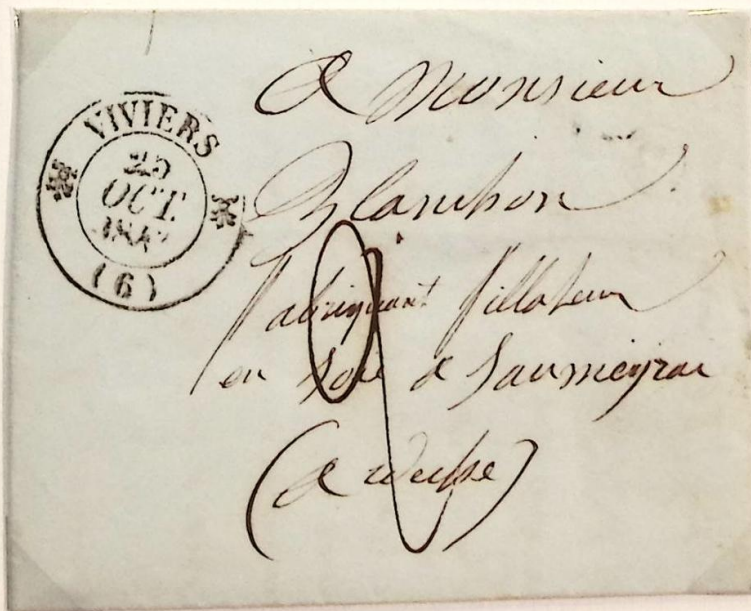 VIVIERS
25
OCT.
(6)
A Monsieur
Blanchon
fabriquant fillateur
en soie a
(Ardeche)